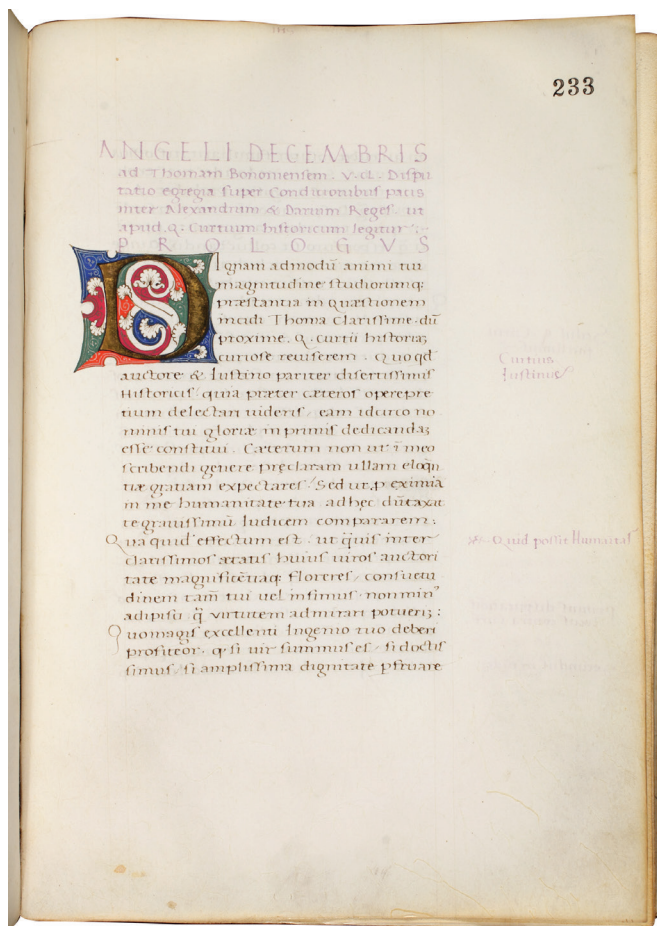 233
ANGELI DECEMBRIS
ad Thomam Bonomensem. V. cl. Dispu
tatio egregia super Conditionibus pacis
inter Alexandrum & Darium Reges. ut
apud. q: Curtium historicum legitur:-
PROLOGVS
DIgnam admodū animi tui
magnitudine studiorumq;
præstantia in quæstionem
incidi Thoma Clarissime. dū
proxime. Q. curtii historias
curiose reviserem. Quo qd
auctore & Iustino pariter disertissimis
Historicis quia præter cæteros operepre
tium delectari uideris, eam idcirco no
minis tui gloriæ in primis dedicandaȝ
esse constitui. Cæterum non ut ī meo
scribendi genere pręclaram ullam eloqn
tiæ gratiam expectares / Sed ut p eximia
in me humanitate tua ad hęc dūtaxat
te grauissimū Iudicem compararem:
Qua quid effectum est. ut quis inter
clarissimos ætatis huius uiros auctori
tate magnificētiaq; floreres / consuetu
dinem tam tui uel infimus non min
adipisci q̄ virtutem admirari potueriȝ:
Quo magis excellenti Ingenio tuo deberi
profiteor. q si uir summus es / si doctis
simus / si amplissima dignitate
Curtius
Iustinus
Quid possit Humanitas